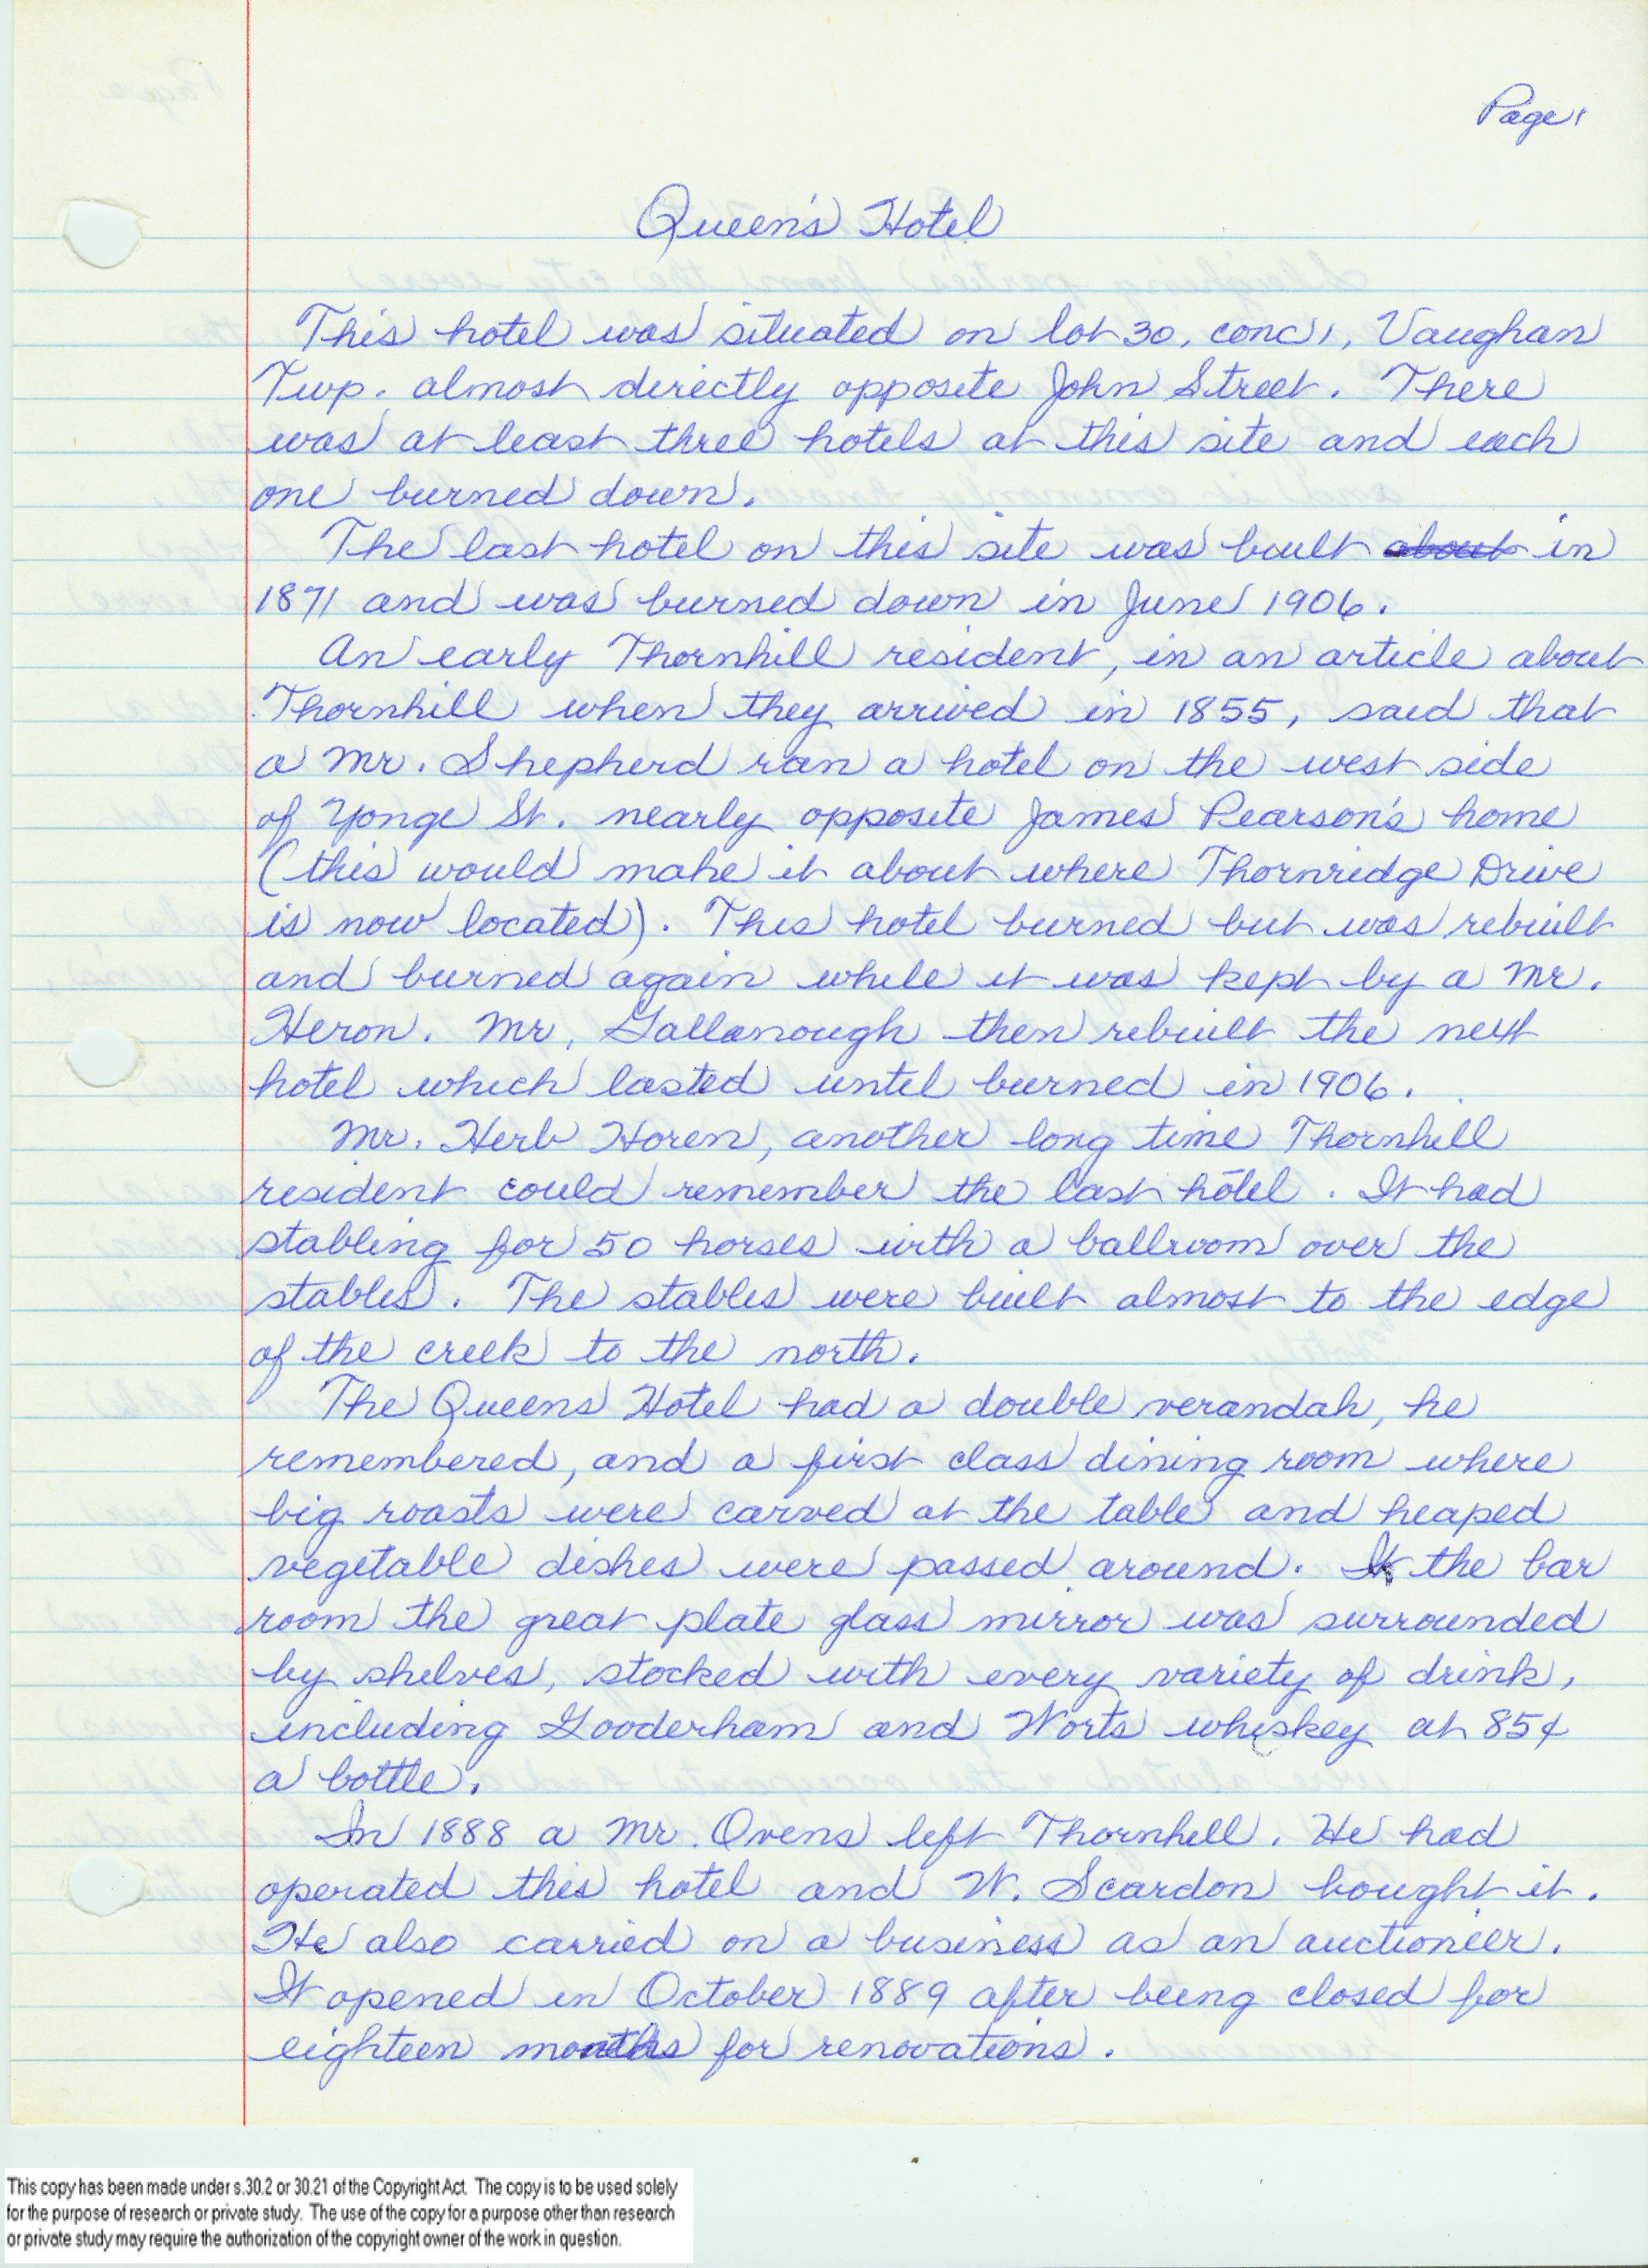 Page 1
Queen's Hotel
This hotel was situated on lot 30, conc 1, Vaughan
Twp. almost directly opposite John Street. There
was at least three hotels at this site and each
one burned down.
The last hotel on this site was built about in
1871 and was burned down in June 1906.
An early Thornhill resident, in an article about
Thornhill when they arrived in 1855, said that
a Mr. Shepherd ran a hotel on the west side
of Yonge St. nearly opposite James Pearson's home
(this would make it about where Thornridge Drive
is now located). This hotel burned but was rebuilt
and burned again while it was kept by a Mr.
Heron. Mr. Gallanough then rebuilt the next
hotel which lasted until burned in 1906.
Mr. Herb Horen, another long time Thornhill
resident could remember the last hotel. It had
stabling for 50 horses with a ballroom over the
stables. The stables were built almost to the edge
of the creek to the north.
The Queens Hotel had a double verandah, he
remembered, and a first class dining room where
big roasts were carved at the table and heaped
vegetable dishes were passed around. In the bar
room the great plate glass mirror was surrounded
by shelves, stocked with every variety of drink,
including Gooderham and Worts whiskey at 85¢
a bottle.
In 1888 a Mr. Ovens left Thornhill. He had
operated this hotel and W. Scardon bought it.
He also carried on a business as an auctioneer.
It opened in October 1889 after being closed for
eighteen months for renovations.
This copy has been made under s.30.2 or 30.21 of the Copyright Act. The copy is to be used solely
for the purpose of research or private study. The use of the copy for a purpose other than research
or private study may require the authorization of the copyright owner of the work in question.